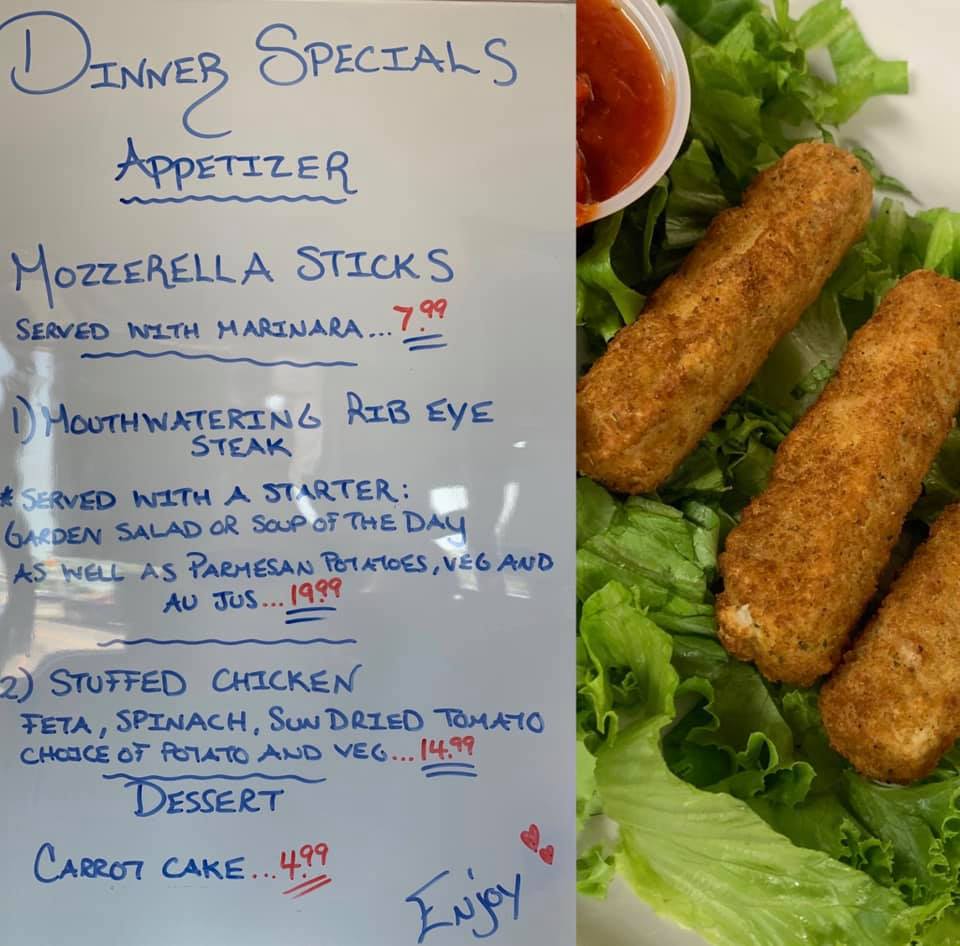 DINNER SPECIALS
APPETIZER
MOZZERELLA STICKS
SERVED WITH MARINARA...7.99
1) MOUTHWATERING RIB EYE
STEAK
* SERVED WITH A STARTER:
GARDEN SALAD OR SOUP OF THE DAY
AS WELL AS PARMESAN POTATOES, VEG AND
AU JUS...19.99
2) STUFFED CHICKEN
FETA, SPINACH, SUN DRIED TOMATO
CHOICE OF POTATO AND VEG...14.99
DESSERT
CARROT CAKE...4.99
ENJOY